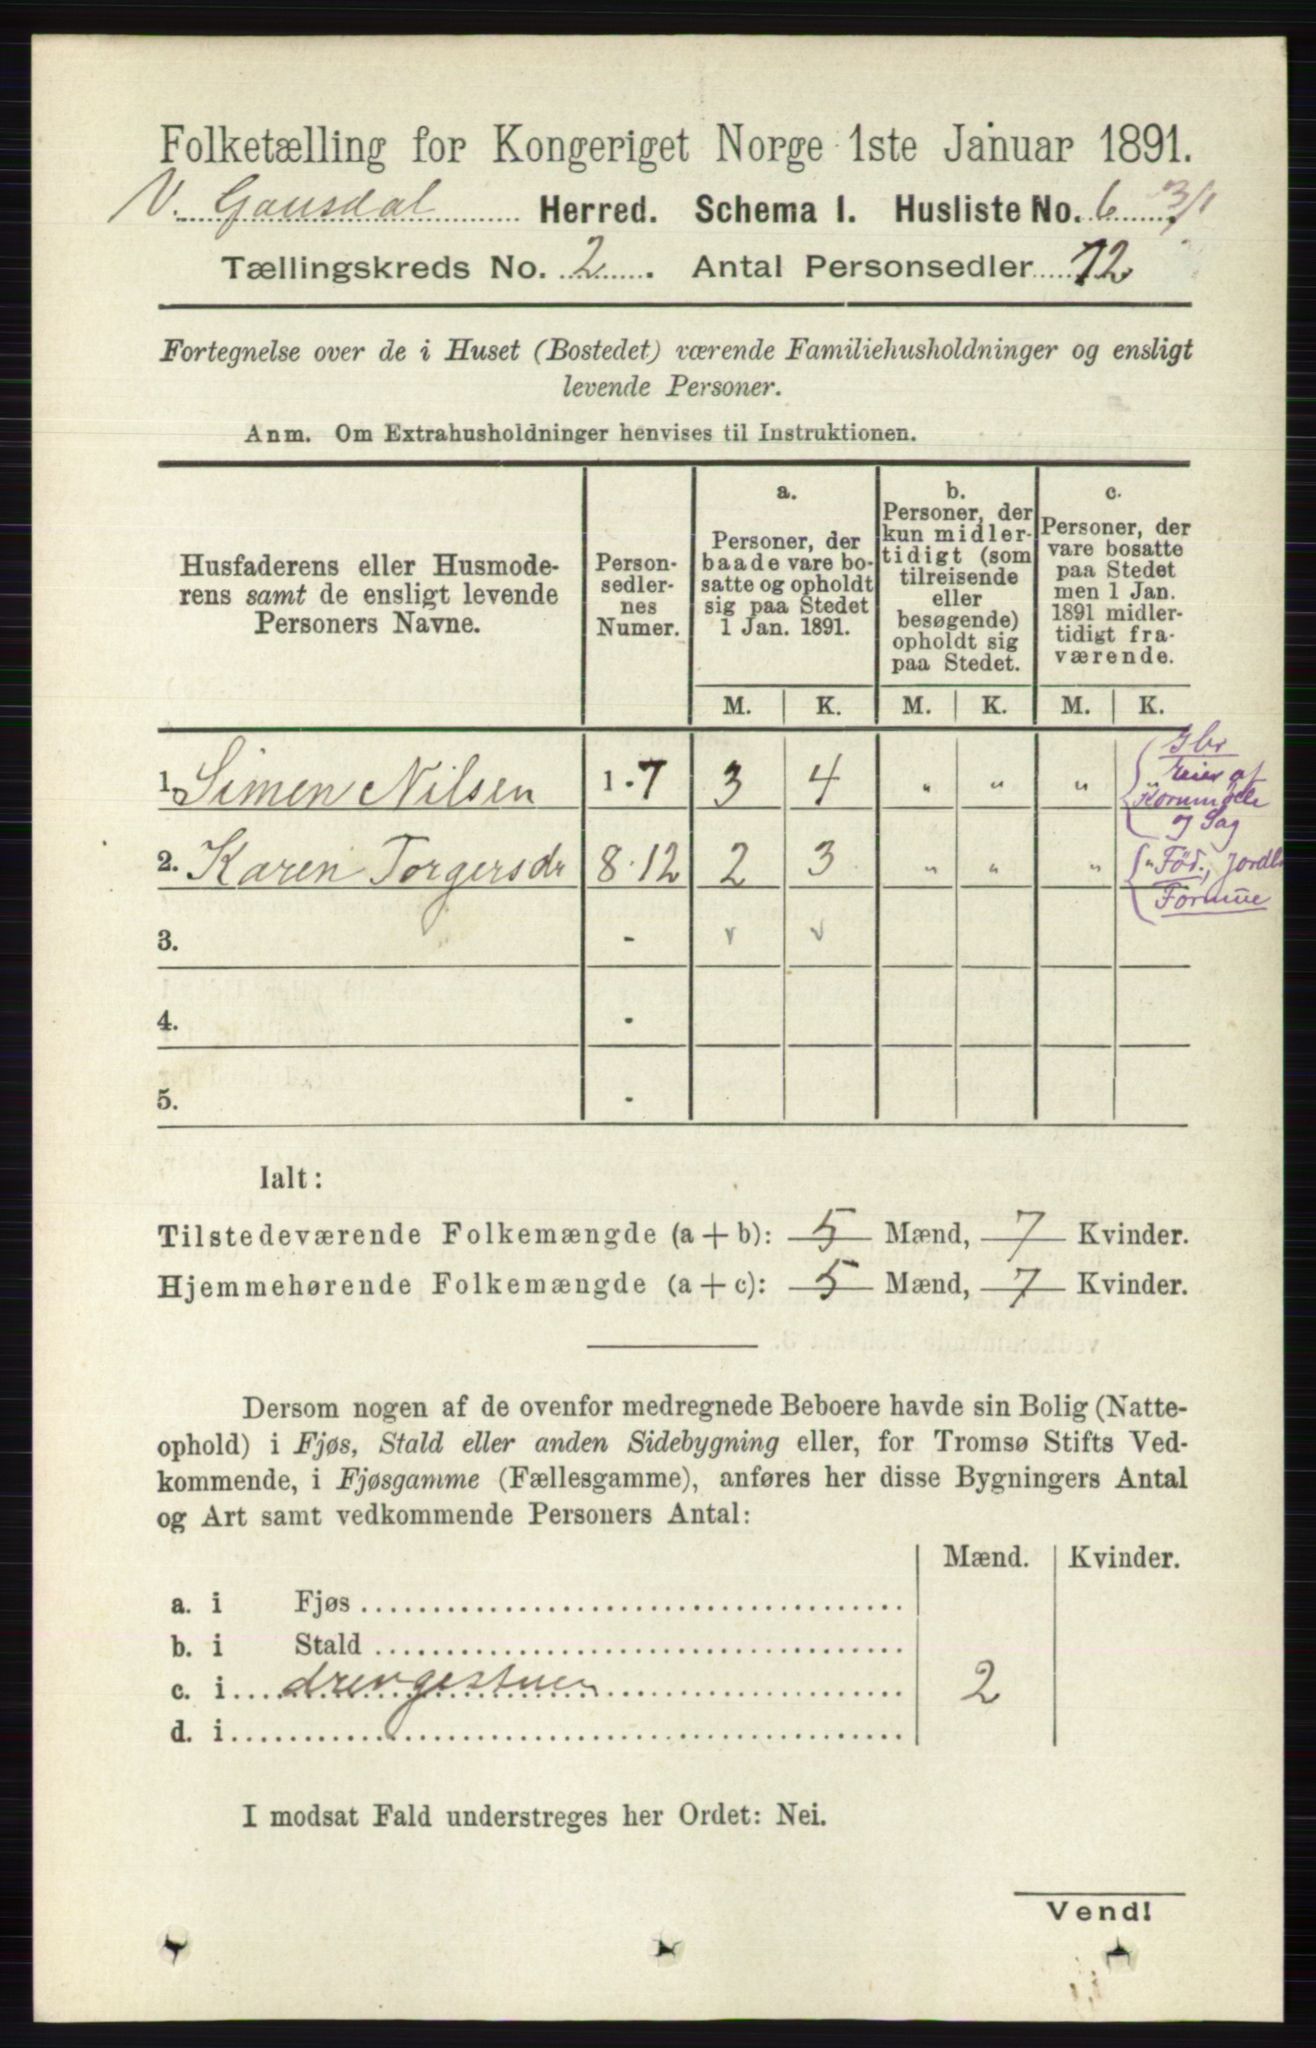 Folketælling for Kongeriget Norge 1ste Januar 1891.
V. Gausdal Herred. Schema I. Husliste No. 6 3/1
Tællingskreds No. 2. Antal Personsedler 12
Fortegnelse over de i Huset (Bostedet) værende Familiehusholdninger og ensligt
levende Personer.
Anm. Om Extrahusholdninger henvises til Instruktionen.
Husfaderens eller Husmode-
rens samt de ensligt levende
Personers Navne.
Person-
sedler-
nes
Numer.
a.
Personer, der
baade vare bo-
satte og opholdt
sig paa Stedet
1 Jan. 1891.
b.
Personer, der
kun midler-
tidigt (som
tilreisende
eller
besøgende)
opholdt sig
paa Stedet.
c.
Personer, der
vare bosatte
paa Stedet
men 1 Jan.
1891 midler-
tidigt fra-
værende.
M. K. M. K. M. K.
1. Simen Nilsen 1-7 3 4 " " " "
Gbr
eier af
Kornmølle
og Sag
2. Karen Torgersdr 8-12 2 3 " " " "
Fød., Jordb
Formue
3. - v v
4. -
5. -
Ialt:
Tilstedeværende Folkemængde (a + b): 5 Mænd, 7 Kvinder.
Hjemmehørende Folkemængde (a + c): 5 Mænd, 7 Kvinder.
Dersom nogen af de ovenfor medregnede Beboere havde sin Bolig (Natte-
ophold) i Fjøs, Stald eller anden Sidebygning eller, for Tromsø Stifts Ved-
kommende, i Fjøsgamme (Fællesgamme), anføres her disse Bygningers Antal
og Art samt vedkommende Personers Antal:
Mænd. Kvinder.
a. i Fjøs
b. i Stald
c. i drengestuen 2
d. i
I modsat Fald understreges her Ordet: Nei.
Vend!